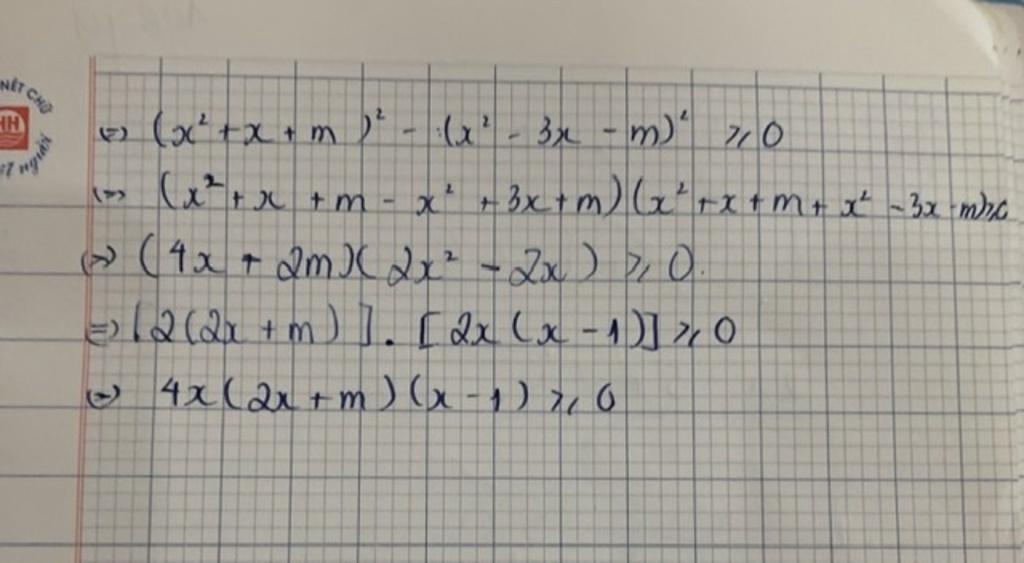 NÉT CHỮ
HH
người
⇔ (x² + x + m)² - (x² - 3x - m)² ≥ 0
⇔ (x² + x + m - x² + 3x + m)(x² + x + m + x² - 3x - m) ≥ 0
⇔ (4x + 2m)(2x² - 2x) ≥ 0.
⇔ [2(2x + m)] . [2x(x - 1)] ≥ 0
⇔ 4x(2x + m)(x - 1) ≥ 0